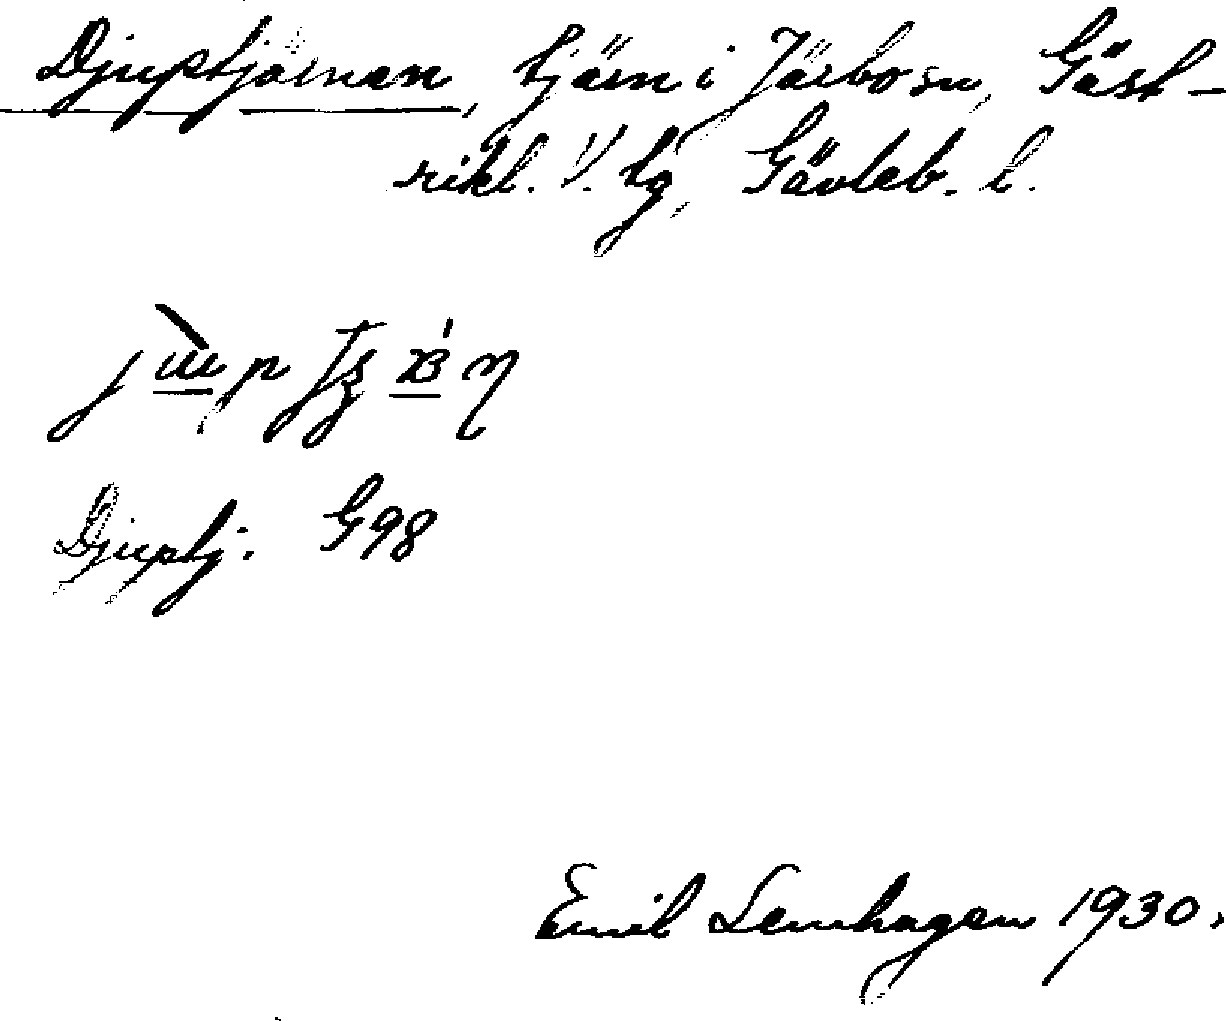 Djuptjärnen, tjärn i Järbo sn, Gäst-
rikl. V. tg, Gävleb. l.
Djuptj. G98
Emil Lenhagen 1930.